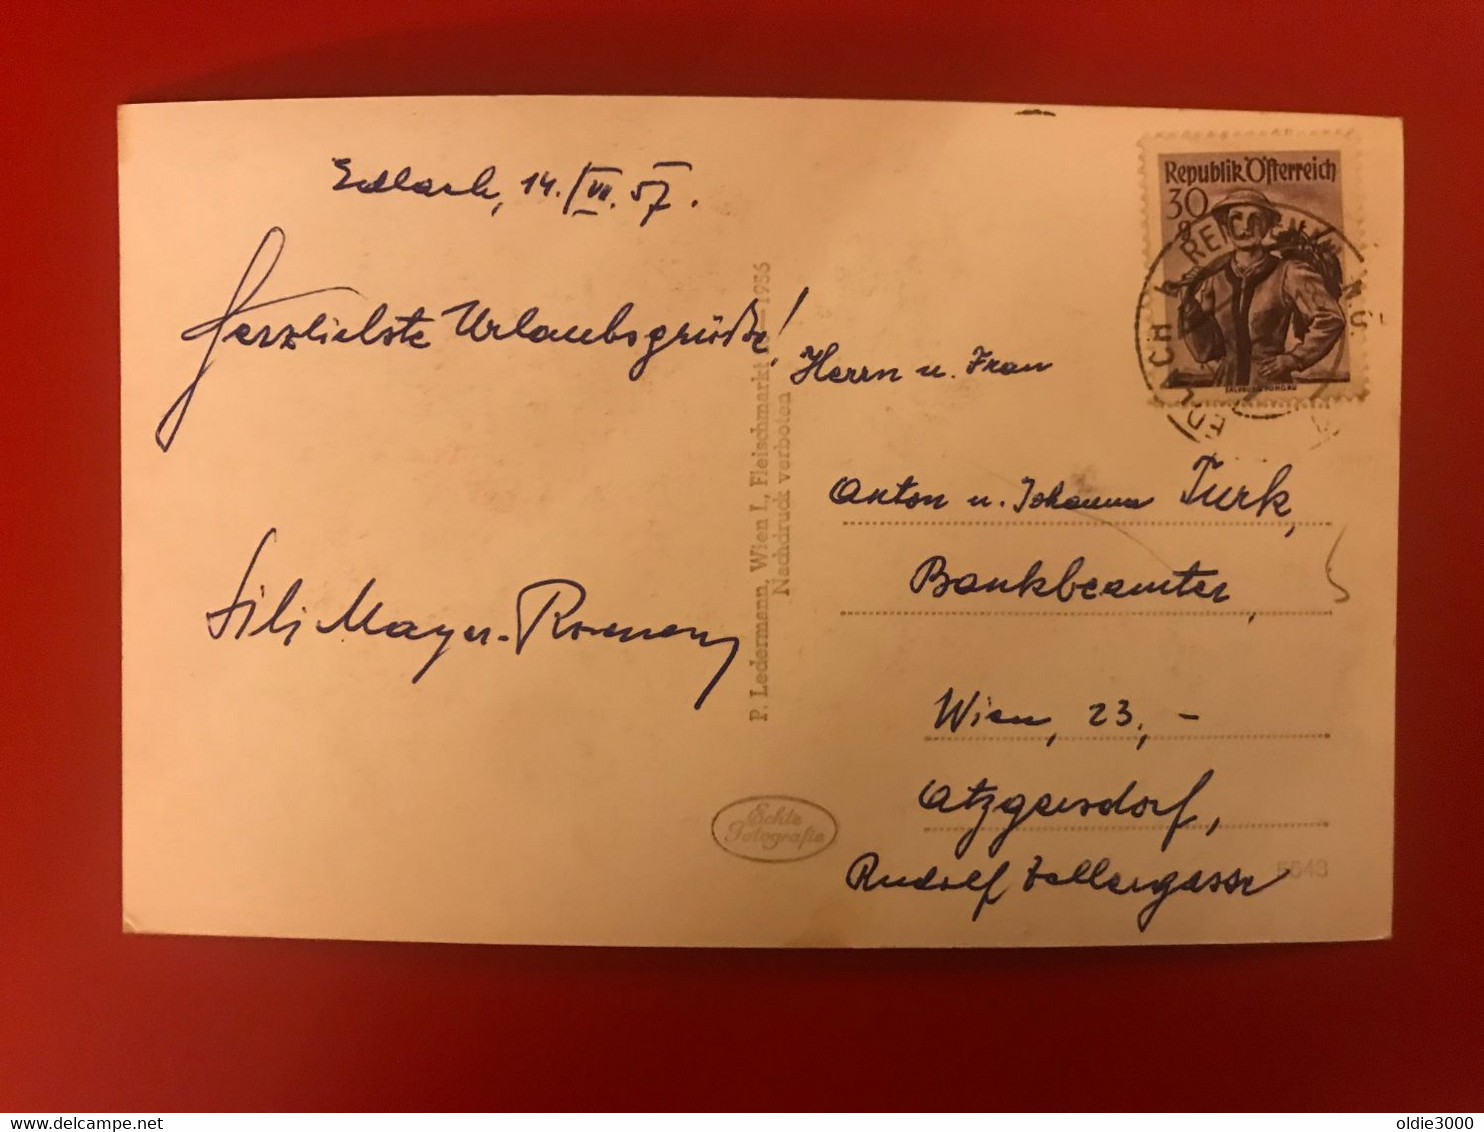 Edlach, 14./VII. 57.
Herzlichste Urlaubsgrüße!
Lili Mayer-
P. Ledermann, Wien I., Fleischmarkt 1956
Nachdruck verboten
Echte
Fotografie
Republik Österreich
30
g
EDLACH A. REICHENAU N.Ö.
Herrn u. Frau
Anton u. Johanna Turk,
Bankbeamter,
Wien, 23, -
Atzgersdorf,
Rudolf Zellergasse
5643
oldie3000